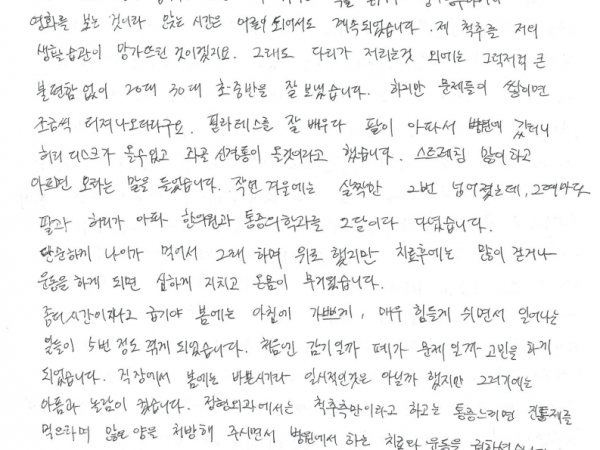 영화를 보는 것이라 앉는 시간은 어른이 되어서도 계속되었습니다. 제 척추를 저의
생활습관이 망가뜨린 것이겠지요. 그래도 다리가 저리는것 외에는 그럭저럭 큰
불편함 없이 20대 30대 초·중반을 잘 보냈습니다. 하지만 문제들이 쌓이면
조금씩 터져나오더라구요. 필라테스를 잘 배우다 팔이 아파서 병원에 갔더니
허리 디스크가 올수있고 좌골 신경통이 온것이라고 했습니다. 스트레칭 많이하고
아프면 오라는 말을 들었습니다. 작년 겨울에는 살짝만 2번 넘어졌는데, 그때마다
팔과 허리가 아파 한의원과 통증의학과를 2달이나 다녔습니다.
단순하게 나이가 먹어서 그래 하며 위로 했지만 치료후에는 많이 걷거나
운동을 하게 되면 심하게 지치고 온몸이 무거웠습니다.
급기야 봄에는 아침에 가쁘게, 매우 힘들게 쉬면서 일어나는
일들이 5번 정도 겪게 되었습니다. 처음엔 감기일까 폐가 문제일까 고민을 하게
되었습니다. 직장에서 봄에는 바쁜시기라 일시적인것은 아닐까 했지만 그러기에는
아픔과 놀람이 컸습니다. 정형외과에서는 척추측만이라고 하고는 통증느끼면 진통제를
먹으라며 많은 양을 처방해 주시면서 병원에서 하는 치료와 운동을